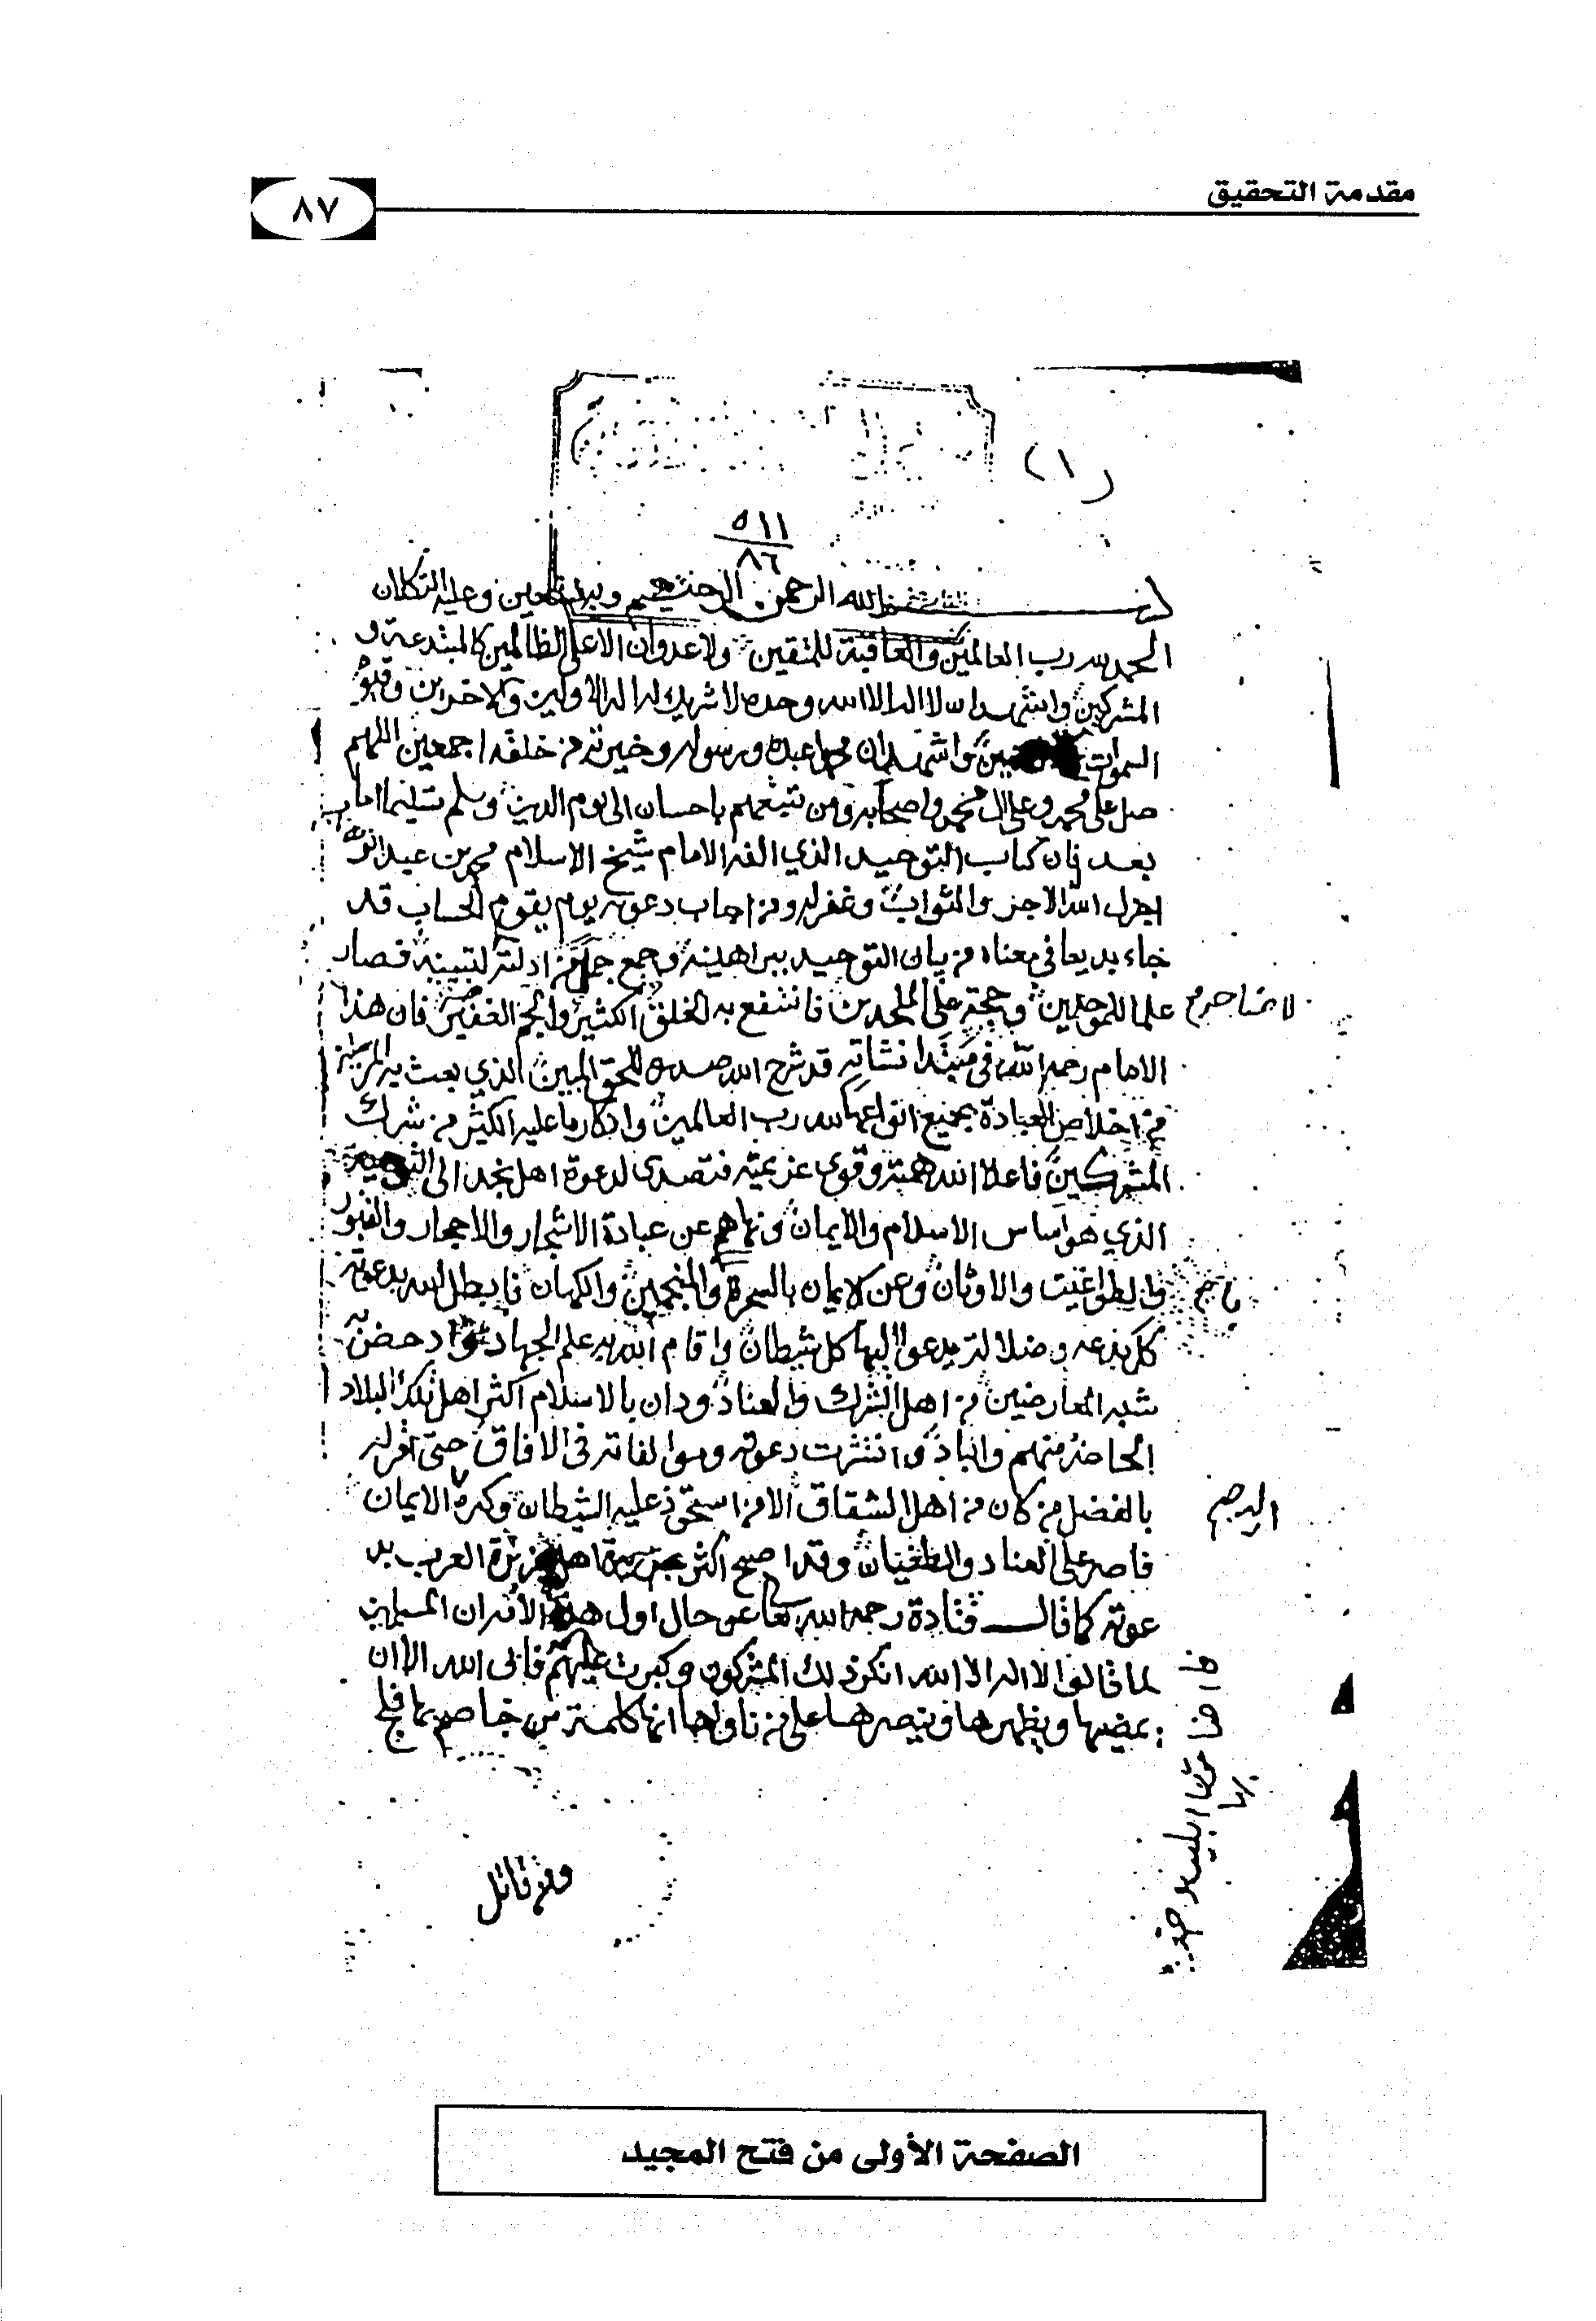 مقدمة التحقيق
٨٧
(١)
٥١١
٨٦
بسم الله الرحمن الرحيم وبه نستعين وعليه التكلان
الحمد لله رب العالمين والعاقبة للمتقين ولا عدوان الا على الظالمين كالمبتدعة و
المشركين واشهد ان لا اله الا الله وحده لا شريك له اله الاولين والاخرين وقيوم
السموات واشهد ان محمدا عبده ورسوله وخيرته من خلقه اجمعين اللهم
صل على محمد وعلى ال محمد واصحابه ومن تبعهم باحسان الى يوم الدين وسلم تسليما اما
بعد فان كتاب التوحيد الذي الفه الامام شيخ الاسلام محمد بن عبد الوهاب
اجزل الله له الاجر والثواب وغفر له ومن اجاب دعوته يوم يقوم الحساب قد
جاء بديعا في معناه من بيان التوحيد ببراهينه وجمع جملا من ادلته لتبيينه فصار
علما للموحدين وحجة على الملحدين فانتفع به الخلق الكثير والجم الغفير فان هذا
الامام رحمه الله في مبتدا نشاته قد شرح الله صدره للحق المبين الذي بعث به المرسلين
من اخلاص العبادة بجميع انواعها لله رب العالمين وانكار ما عليه الكثير من شرك
المشركين فاعلا الله همته وقوى عزيمته فتصدى لدعوة اهل نجد الى التوحيد
الذي هو اساس الاسلام والايمان ونهاهم عن عبادة الاشجار والاحجار والقبور
والطواغيت والاوثان وعن الايمان بالسحرة والمنجمين والكهان فابطل الله بدعوته
كل بدعه وضلالة يدعوا اليها كل شيطان واقام الله به علم الجهاد وادحض به
شبه المعارضين من اهل الشرك والعناد ودان بالاسلام اكثر اهل تلك البلاد
الحاضر منهم والباد وانتشرت دعوته ومؤلفاته في الافاق حتى اقر له
بالفضل من كان من اهل الشقاق الا من استحوذ عليه الشيطان وكره الايمان
فاصر على العناد والطغيان وقد اصبح اكثر اهل جزيرة العرب بد
عوته كما قال قتادة رحمه الله تعا عن حال اول هذه الامة ان المسلمين
لما قالوا لا اله الا الله انكر ذلك المشركون وكبرت عليهم فابى الله الا ان
يمضيها ويظهرها وينصرها على من ناواها انها كلمة من خاصم بها فلج
ومن قاتل
الصفحة الأولى من فتح المجيد